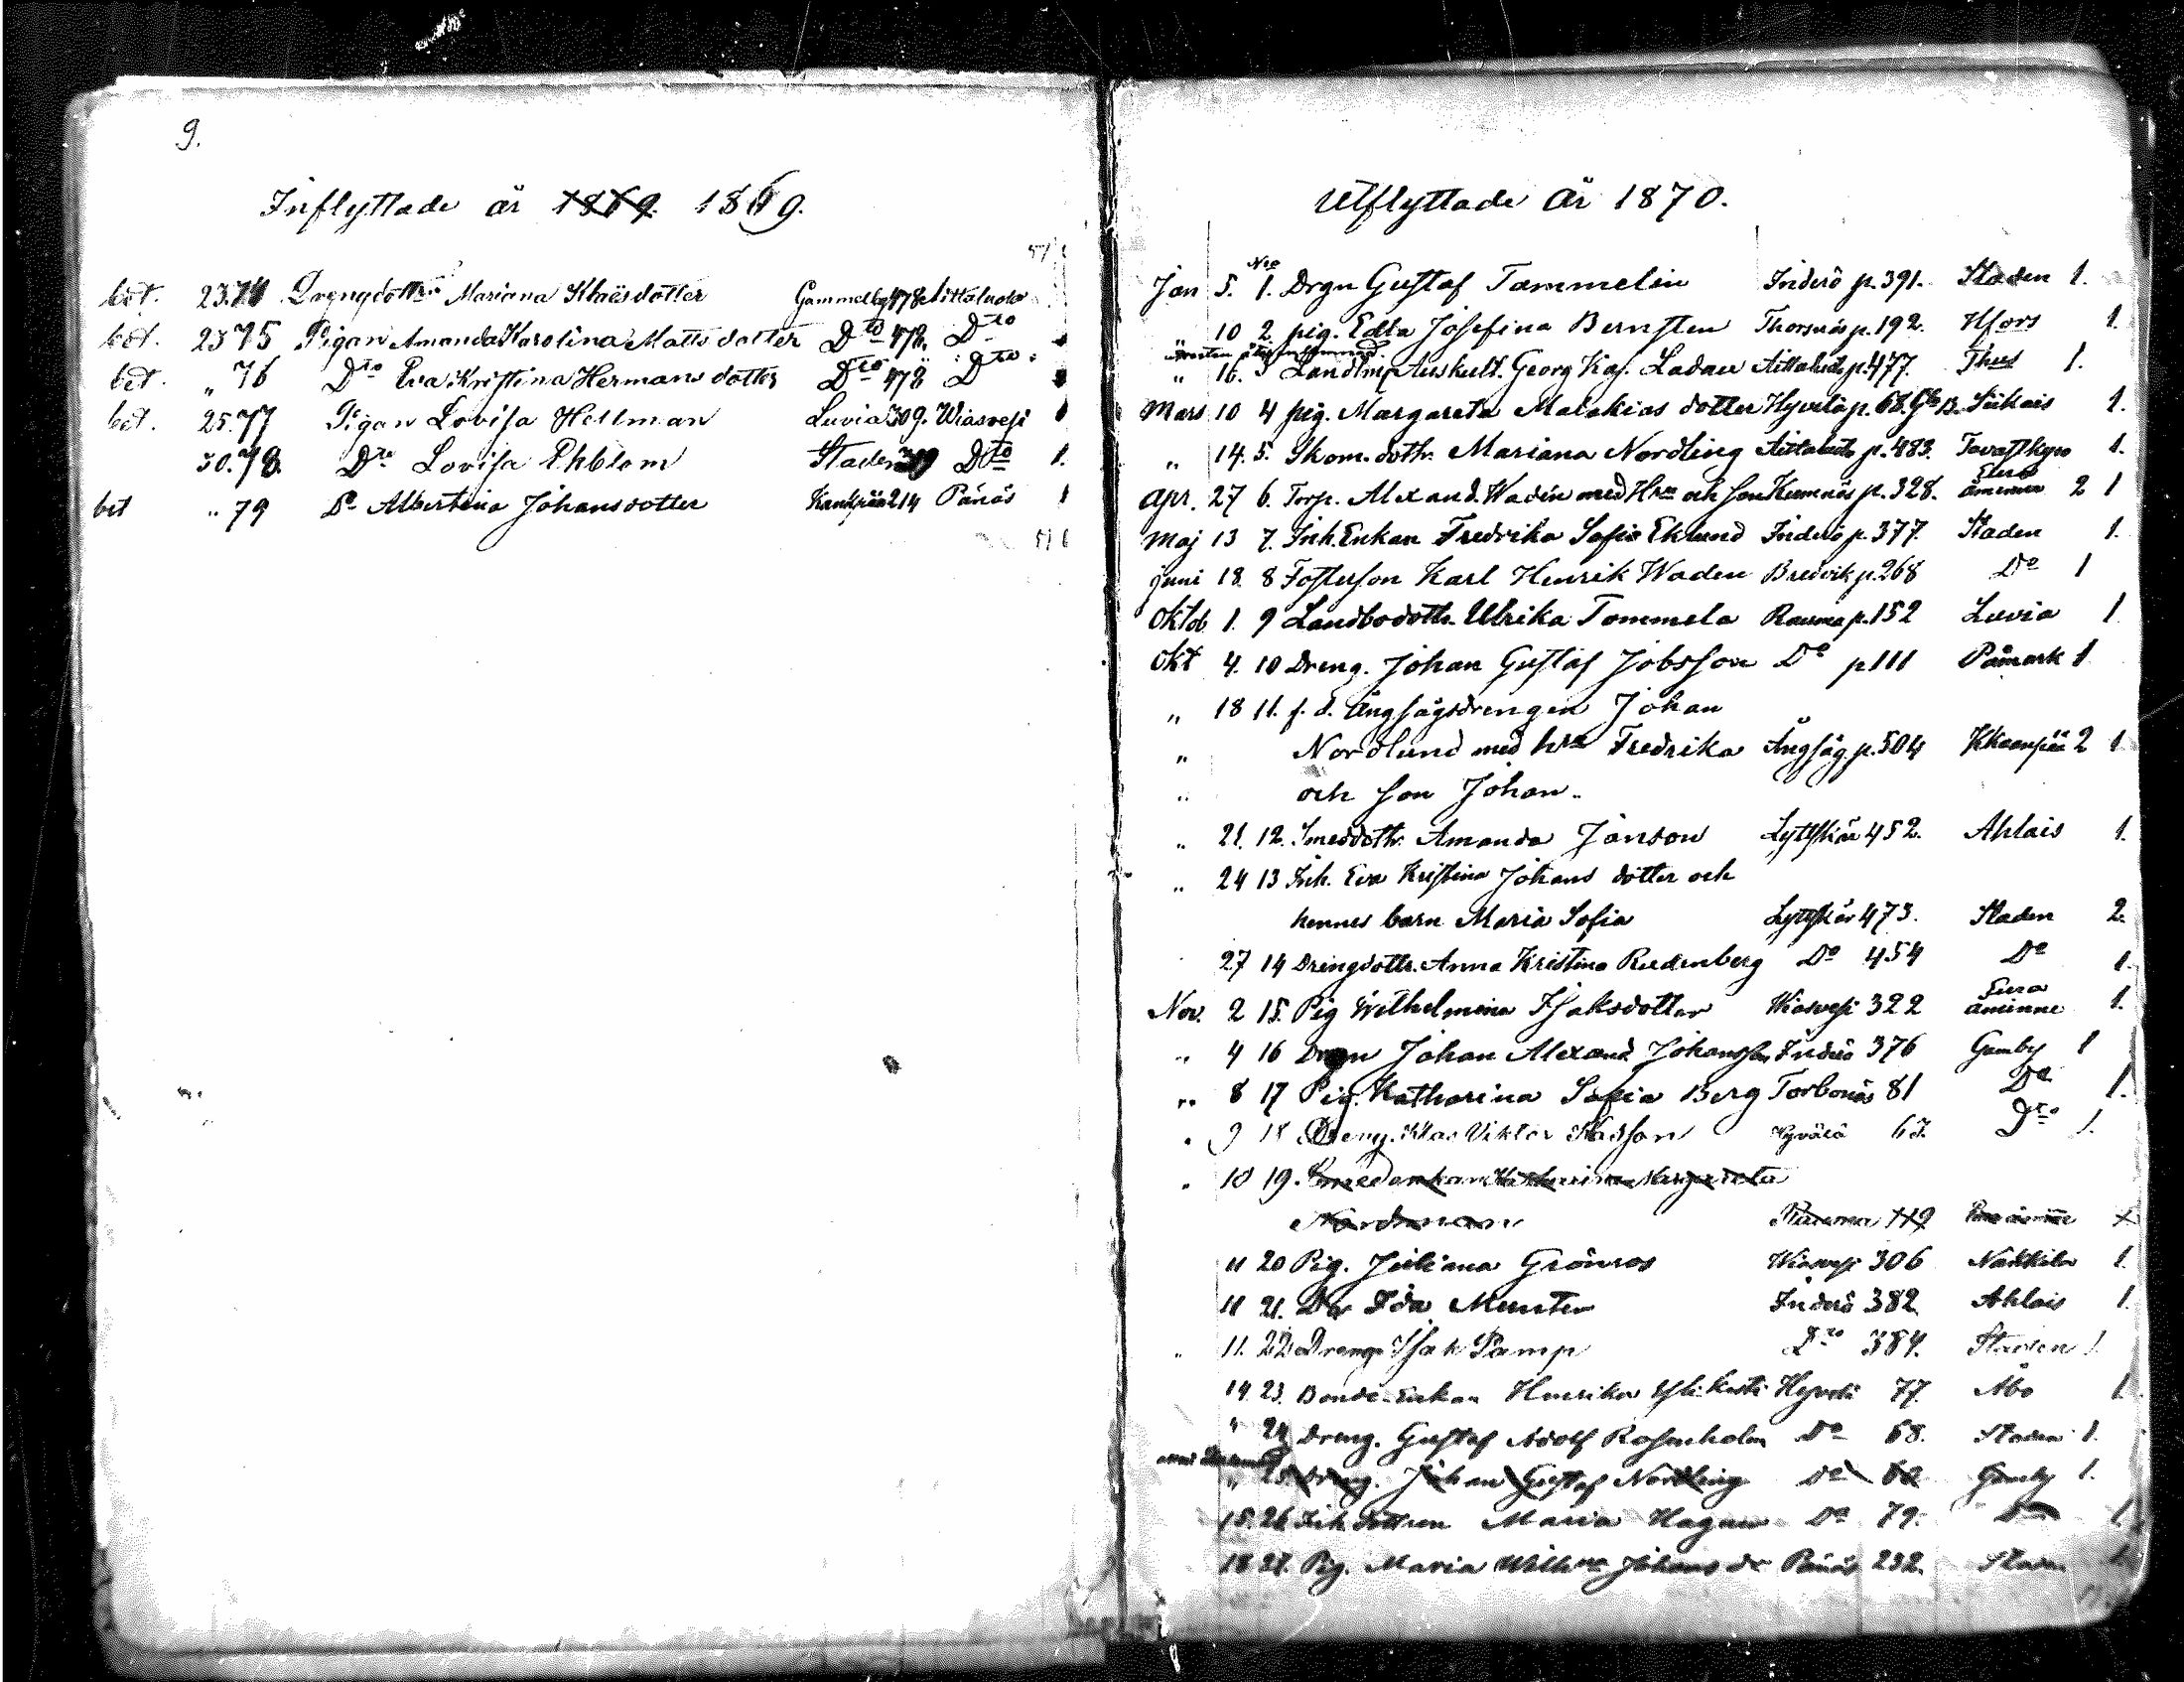 9.
Inflyttade år 1869. 1869.
bet. 23. 74 Drengdottr Mariana Klaësdotter Gammelby 478 Aittaluoto
bet. 23 75 Pigan Amanda Karolina Matts dotter Dto 478. Dto
bet. " 76 Dto Eva Kristina Hermans dotter Dto 478 Dto
bet. 25. 77 Pigan Lovisa Hellman Luvia 309. Wiasvesi 1
30. 78. Dto Lovisa Ekblom Staden Dto 1.
bet " 79 Do Albertina Johansdotter 214 Pänäs 1
Utflyttade År 1870.
Jan 5. No 1. Drgn Gustaf Tammelin Inderö p. 391. Staden 1.
" 10 2. pig. Edla Josefina Bernsten Thorsnäs p. 192. Hfors 1.
" 16. 3 Landtm. Auskult. Georg Kaj. Ladau p. 477. Thus 1.
Mars 10 4 pig. Margareta Malakias dotter Hyvelä p. 68. Siikais 1.
" 14. 5. Skom. dottr. Mariana Nordling p. 483. Tavastkyro 1.
Apr. 27 6. Torp. Alexand. Wadén med Hru och son Kumnäs p. 328. Eura åminne 2 1
Maj 13 7. Inh. Enkan Fredrika Sofia Eklund Inderö p. 377. Staden 1.
juni 18. 8 Fosterson Karl Henrik Waden Bredvik p. 268 Do 1
Oktob. 1. 9 Landbodottr. Ulrika Tommela Rauma p. 152 Luvia 1
Okt 4. 10 Dreng. Johan Gustaf Jobsson Do p 111 Påmark 1
" 18 11. f. d. Ångsågsdrengen Johan
" Nordlund med hru Fredrika Ångsåg. p. 504 Kkaanpää 2 1
" och son Johan.
" 21. 12. Smeddottr. Amanda Janson Lyttskär 452. Ahlais 1.
" 24 13 Inh. Eva Kristina Johans dotter och
hennes barn Maria Sofia Lyttskär 473. Staden 2.
27 14 Drengdottr. Anna Kristina Rudenberg Do 454 Do 1.
Nov. 2 15. Pig Wilhelmina Isaksdotter Wiasvesi 322 Eura åminne 1.
" 4 16 Drgn Johan Alexand. Johansson Inderö 376 Gamby 1
" 8 17 Pig. Katharina Sofia Berg Torbonäs 81 Do 1.
" 9 18 Dreng. Klas Viktor Hyvälä 67. Dto 1.
" 10 19. Smedenkan Katharina Margareta
Nordman Rauma 119
11 20 Pig. Juliana Grönros Wiasvesi 306 Nakkila 1.
11 21. Do Ida Munter Inderö 382 Ahlais 1.
" 11. 22 Dreng Isak Pamp Dto 384. Staden 1.
14. 23. Bonde-Enkan Henrika Hyvelä 77. Åbo 1.
" 24 Dreng. Gustaf Adolf Rosenholm Do 68. Staden 1.
" 25 Dreng. Johan Gustaf Nordling Do Gamby 1.
15. 26 Inh. dottren Maria Hagman Do 79. Do 1.
18 27. Pig. Maria Wilhna Johans dr Pänäs 232. Staden 1.